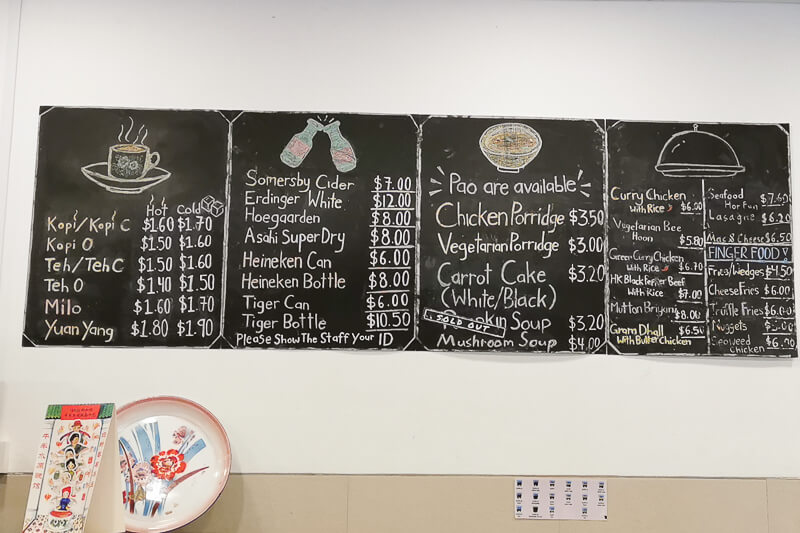 Hot Cold
Kopi/Kopi C $1.60 $1.70
Kopi O $1.50 $1.60
Teh/Teh C $1.50 $1.60
Teh O $1.40 $1.50
Milo $1.60 $1.70
Yuan Yang $1.80 $1.90
Somersby Cider $7.00
Erdinger White $12.00
Hoegaarden $8.00
Asahi Super Dry $8.00
Heineken Can $6.00
Heineken Bottle $8.00
Tiger Can $6.00
Tiger Bottle $10.50
Please Show The Staff Your ID
Pao are available
Chicken Porridge $3.50
Vegetarian Porridge $3.00
Carrot Cake $3.20
(White/Black)
SOLD OUT Soup $3.20
Mushroom Soup $4.00
Curry Chicken
with Rice $6.00
Vegetarian Bee
Hoon $5.80
Green Curry Chicken
With Rice $6.70
HK Black Pepper Beef
With Rice $7.00
Mutton Briyani $8.00
Gram Dhall $6.50
With Butter Chicken
Seafood
Hor Fun $7.60
Lasagne $6.20
Mac & Cheese $6.50
FINGER FOOD
Fries/Wedges $4.50
Cheese Fries $6.00
Truffle Fries $6.00
Nuggets
Seaweed
Chicken $6.00